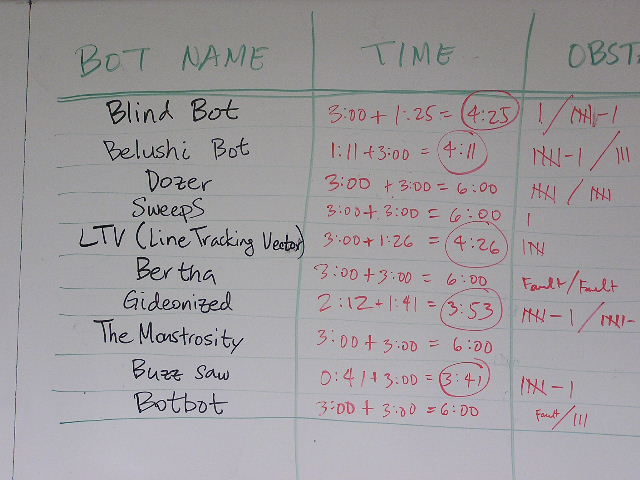 BOT NAME TIME OBST
Blind Bot 3:00 + 1:25 = 4:25 | / 卌-1
Belushi Bot 1:11 + 3:00 = 4:11 卌-1 / |||
Dozer 3:00 + 3:00 = 6:00 卌 / 卌
SweepS 3:00 + 3:00 = 6:00 |
LTV (Line Tracking Vector) 3:00 + 1:26 = 4:26
Bertha 3:00 + 3:00 = 6:00 Fault/Fault
Gideonized 2:12 + 1:41 = 3:53 卌-1 / 卌-
The Monstrosity 3:00 + 3:00 = 6:00
Buzz saw 0:41 + 3:00 = 3:41 卌-1
Botbot 3:00 + 3:00 = 6:00 Fault/|||